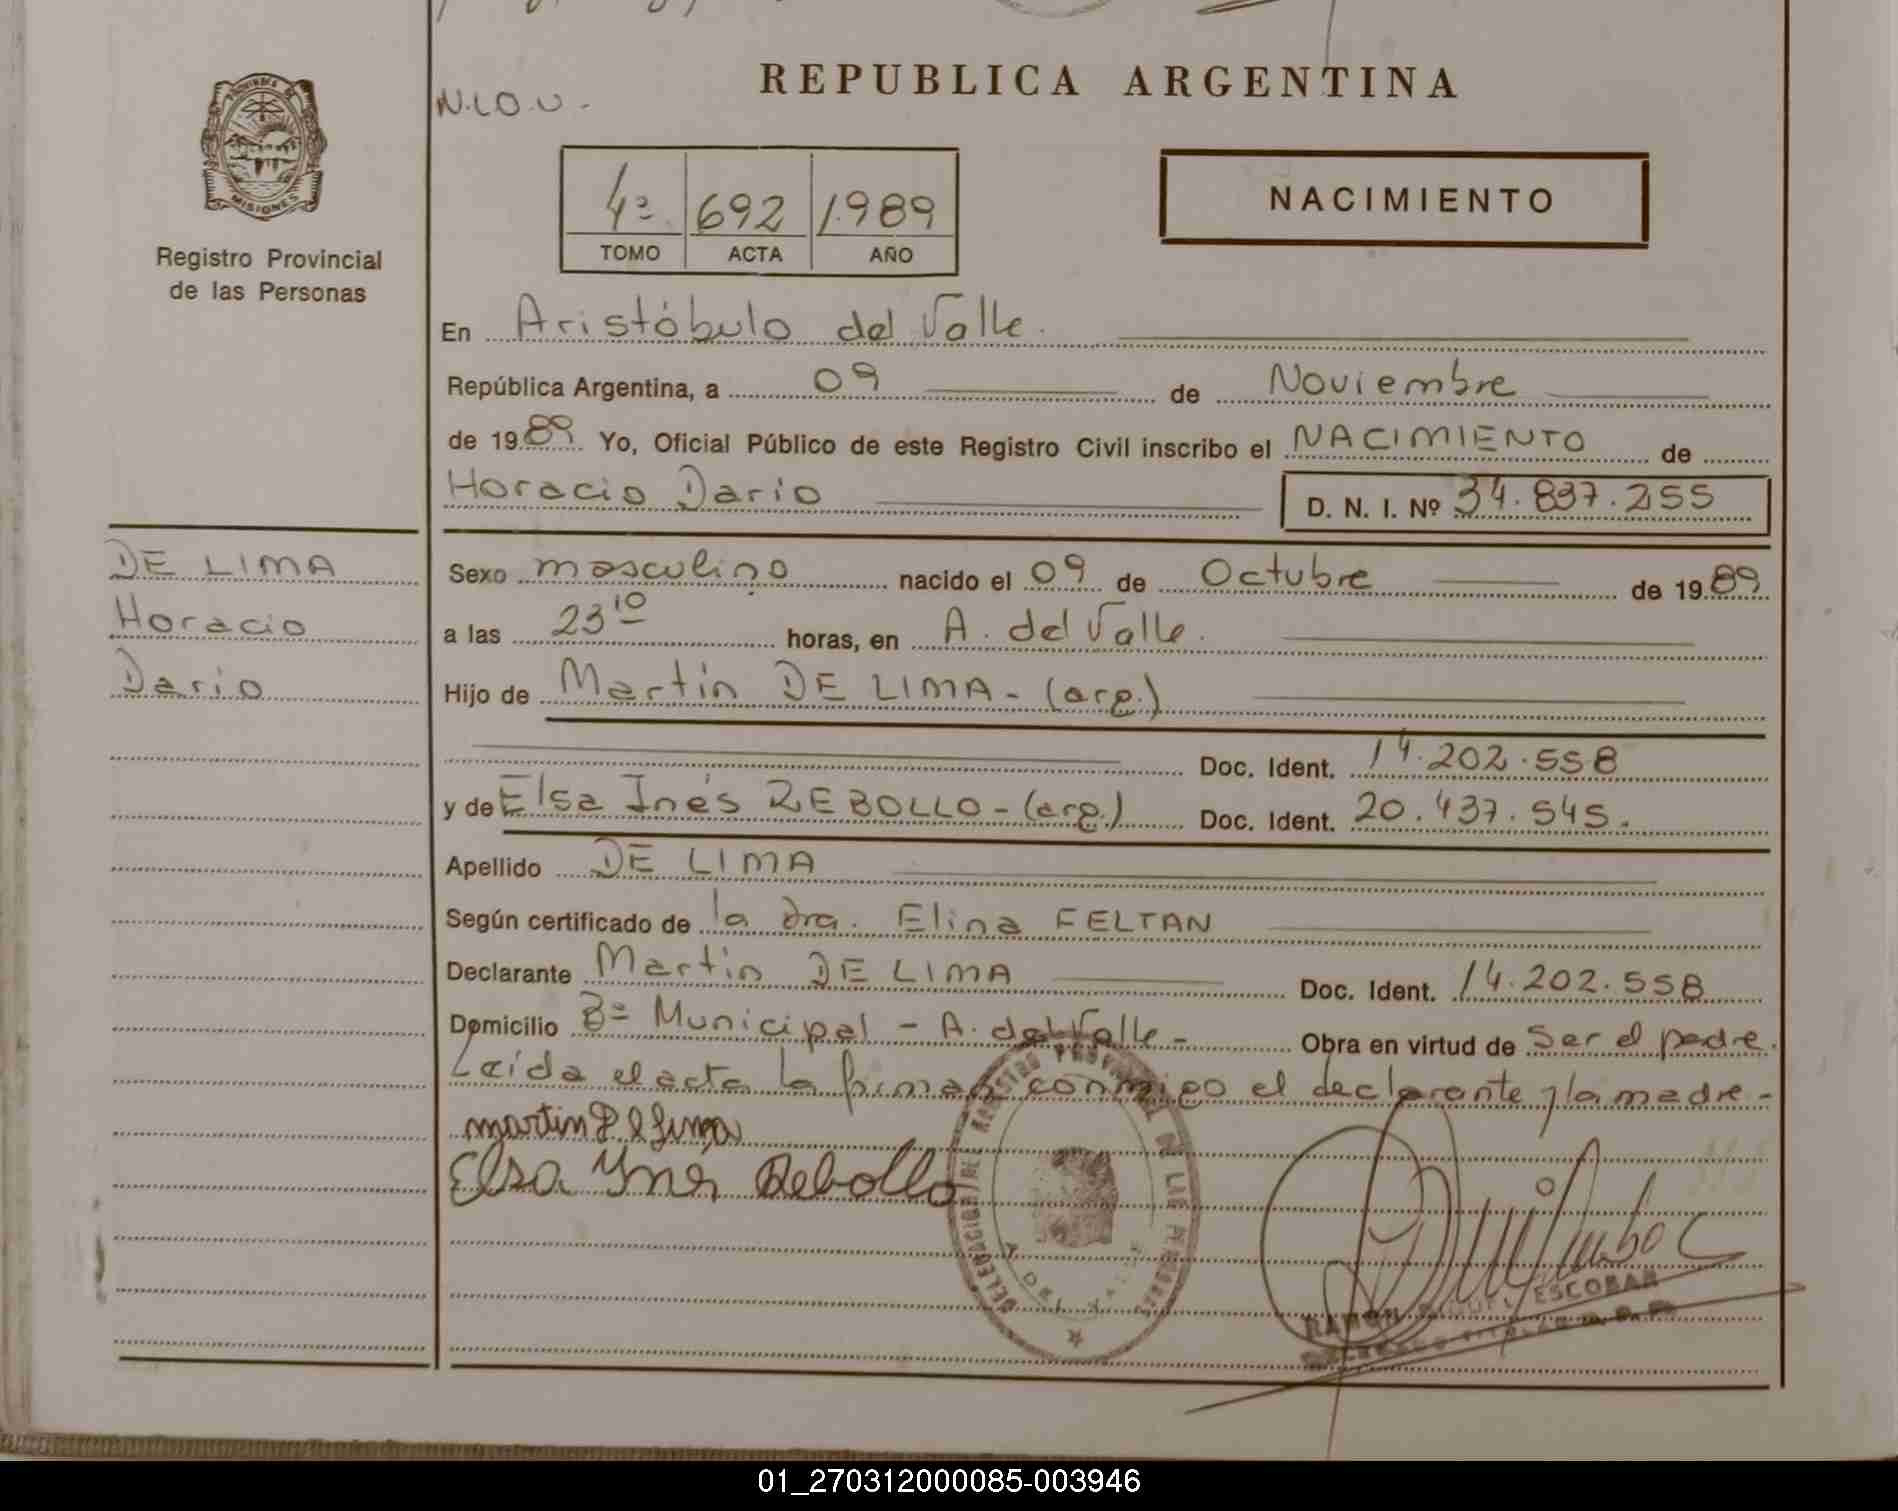 REPUBLICA ARGENTINA
PROVINCIA DE
MISIONES
Registro Provincial
de las Personas
4ª 692 1989
TOMO ACTA AÑO
NACIMIENTO
En Aristóbulo del Valle.
República Argentina, a 09 de Noviembre
de 1989 Yo, Oficial Público de este Registro Civil inscribo el NACIMIENTO de
Horacio Dario D. N. I. Nº 34.837.255
DE LIMA
Horacio
Dario
Sexo masculino nacido el 09 de Octubre de 1989
a las 23 10 horas, en A. del Valle.
Hijo de Martín DE LIMA - (arg.)
Doc. Ident. 14.202.558
y de Elsa Inés REBOLLO - (arg.) Doc. Ident. 20.437.545.
Apellido DE LIMA
Según certificado de la Dra. Elina FELTAN
Declarante Martin DE LIMA Doc. Ident. 14.202.558
Domicilio Bº Municipal - A. del Valle - Obra en virtud de ser el padre.
Leída el acta la firman conmigo el declarante y la madre -
martin De lima
Elsa Ynes Rebollo
DELEGACION DEL REGISTRO PROVINCIAL DE LAS PERSONAS
A. DEL VALLE
RAMON MIGUEL ESCOBAR
01_270312000085-003946